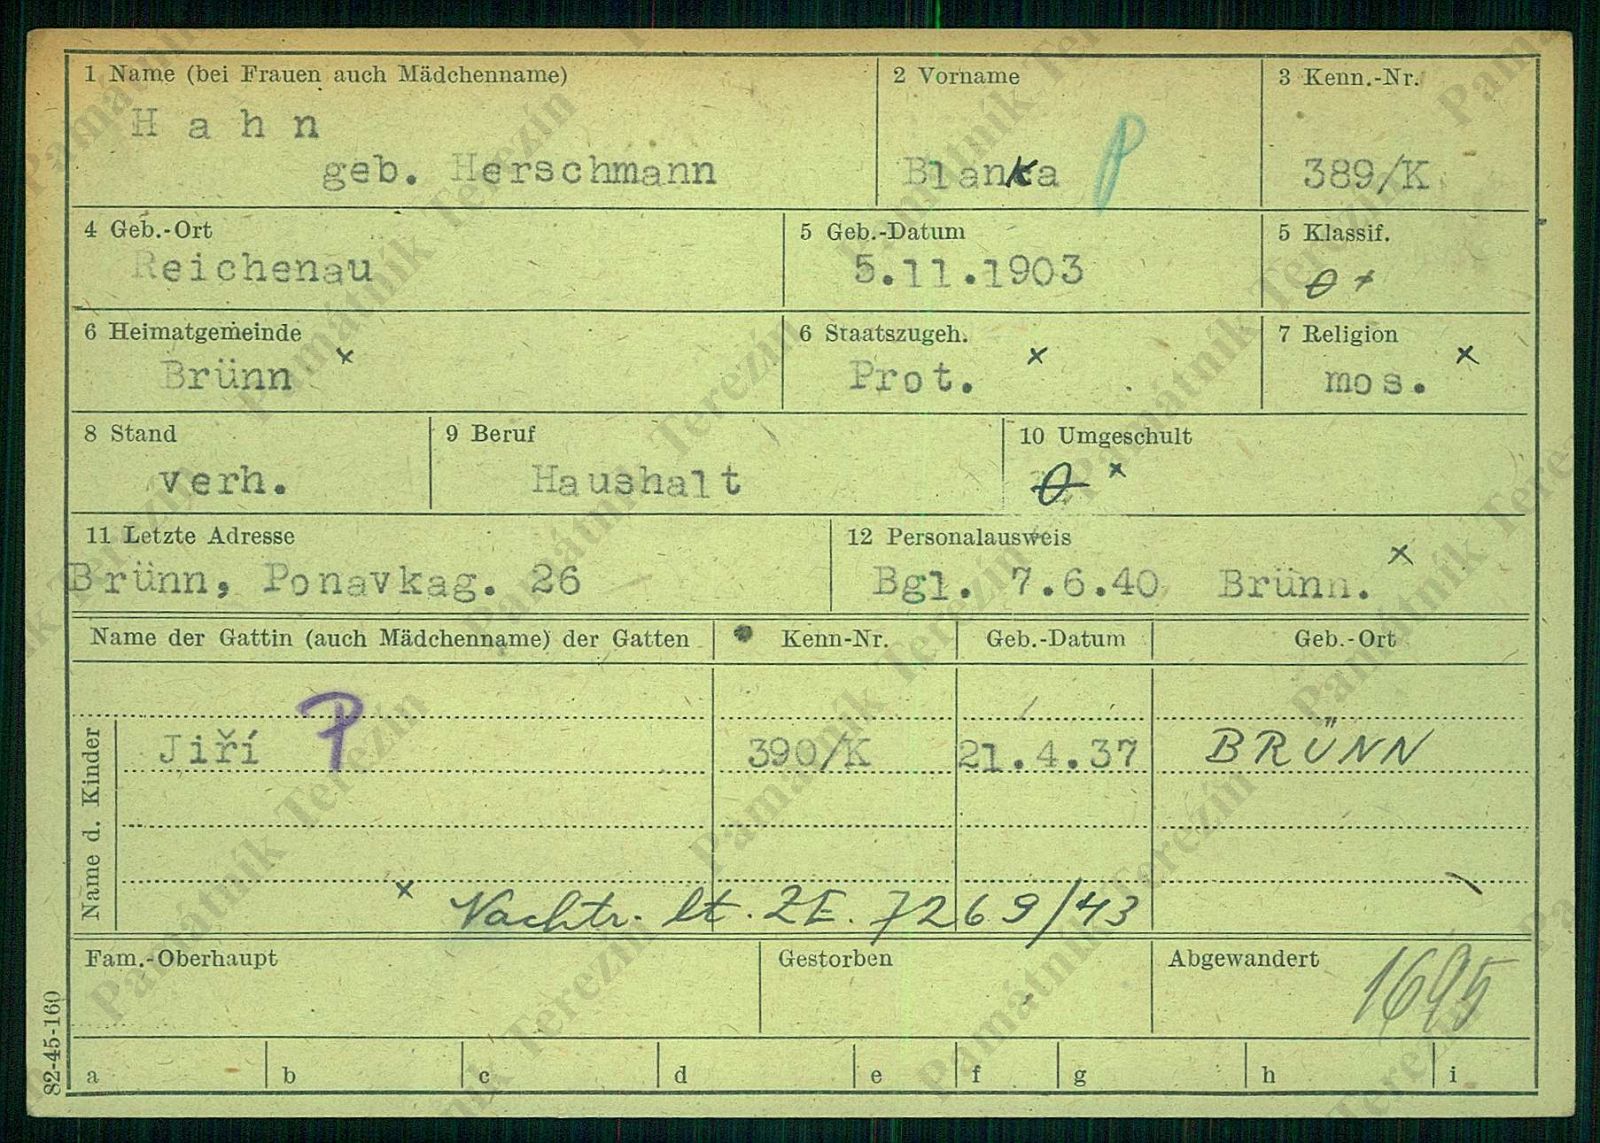 1 Name (bei Frauen auch Mädchenname)
Hahn
geb. Herschmann
2 Vorname
Blanka P
3 Kenn.-Nr.
389/K
4 Geb.-Ort
Reichenau
5 Geb.-Datum
5.11.1903
5 Klassif.
0 x
6 Heimatgemeinde
Brünn x
6 Staatszugeh.
Prot. x
7 Religion
mos. x
8 Stand
verh.
9 Beruf
Haushalt
10 Umgeschult
0 x
11 Letzte Adresse
Brünn, Ponavkag. 26
12 Personalausweis
Bgl. 7.6.40 Brünn. x
Name der Gattin (auch Mädchenname) der Gatten Kenn-Nr. Geb.-Datum Geb.-Ort
Name d. Kinder
Jiří P 390/K 21.4.37 BRÜNN
x Nachtr. lt. ZE. 7269/43
Fam.-Oberhaupt
Gestorben
Abgewandert
1695
82-45-160
a b c d e f g h i
Památník Terezín